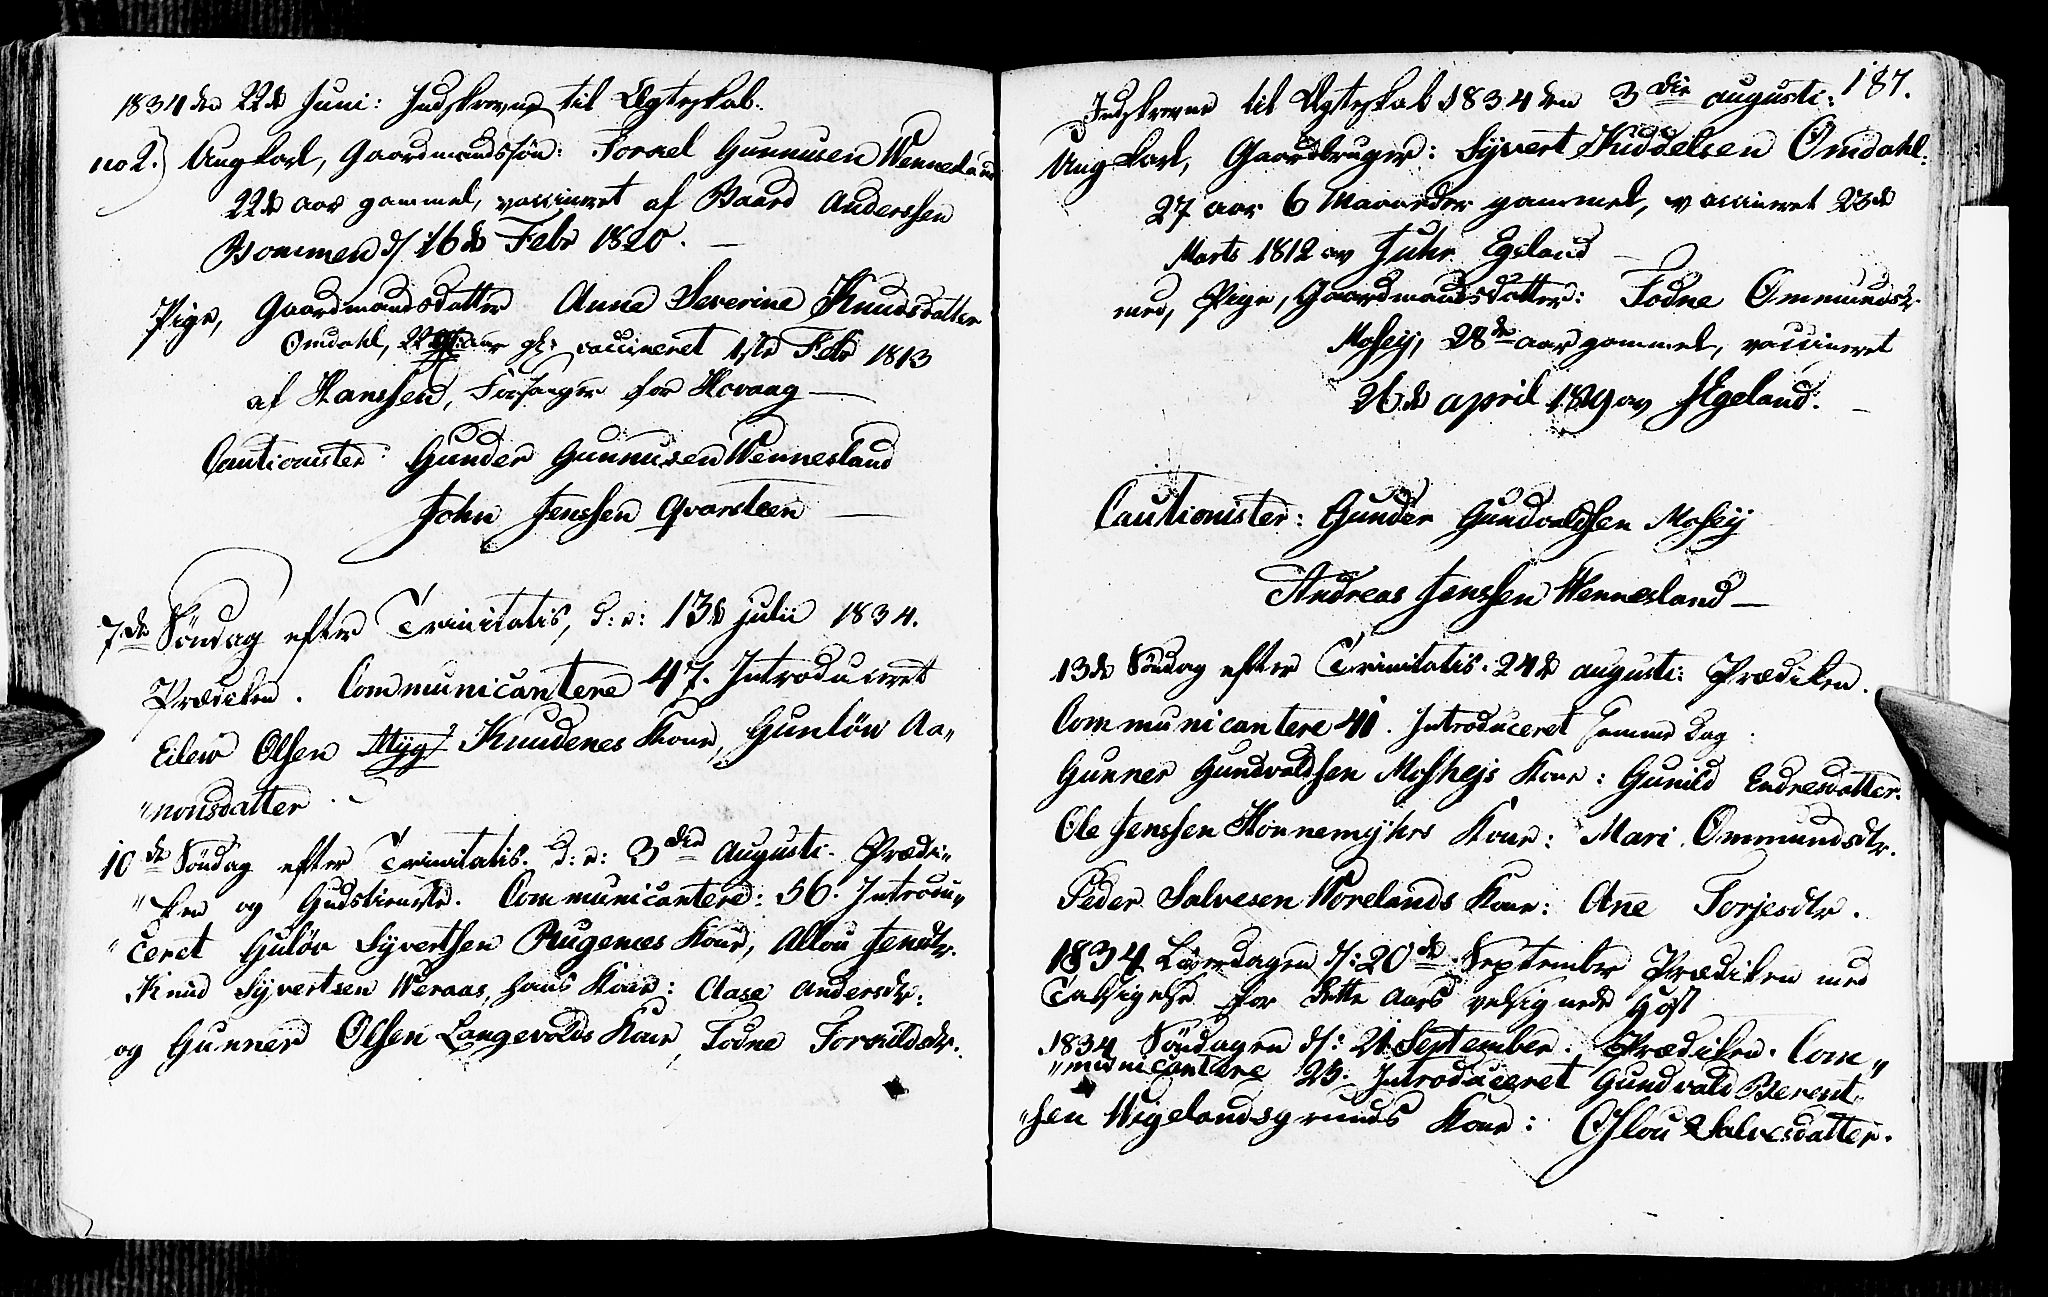 1834 den 22de Juni: Indskrevne til Ægteskab.
no 2.) Ungkarl, Gaardmandssøn: Torkel Gunnusen Wennesland
22de aar gammel, vaccineret af Baard Anderssen
Bommen d/ 16de Febr 1820. —
Pige, Gaardmandsdatter Anna Severine Knudsdatter
Omdahl, 22 aar gl: vaccineret 1ste Febr 1813
af Hanssen, Forsanger for Hovaag —
Cautionister: Gunder Gunnusen Wennesland
John Jenssen Qvarsteen —
7de Søndag efter Trinitatis, d: e: 13de julii 1834.
Prædiken. Communicantere 47. Introduceret
Eilew Olsen Myg? Knudenes Kone, Gunløw Aa„
„nonsdatter.
10de Søndag efter Trinitatis. d: e: 3die Augusti. Prædi„
„ken og Gudstieneste. Communicantere: 56. Introdu„
„ceret Guløv Syvertsen Rugenes Kone, Allou Jensdtr.
Knud Syvertsen Weraas, hans Kone: Aase Andersdtr:
og Gunner Olsen Langevolds Kone, Todne Torkildsdtr.
187.
Indskrevne til Ægteskab 1834 den 3die augusti:
Ungkarl, Gaardbruger: Syvert Kiddelsen Omdahl:
27 aar 6 Maaneder gammel, vaccineret 23de
Marts 1812 av Juhr Egeland —
med, Pige, Gaardmandsdatter: Todne Ommundsdtr.
Mosey, 28de aar gammel, vaccineret
26de april 1819 av Egeland. —
Cautionister: Gunder Gundvaldsen Mosey
Andreas Jenssen Wennesland —
13de Søndag efter Trinitatis. 24de augusti: Prædiken.
Communicantere 41. Introduceret samme Dag:
Gunner Gundvaldsen Moshejs Kone: Gunild Endresdatter.
Ole Jenssen Hønnemyhrs Kone: Mari Ommundsdtr.
Peder SalvesenWorelands Kone: Ane Torjesdtr.
1834 Løverdagen d/: 20de September Prædiken med
Taksigelse for dette Aars velsignede Høst
1834 Søndagen d/: 21 September. Prædiken. Com„
„municantere 25. Introduceret Gundvald Berent„
„sen Wigelandsgrunds Kone: Oslou Salvesdatter.